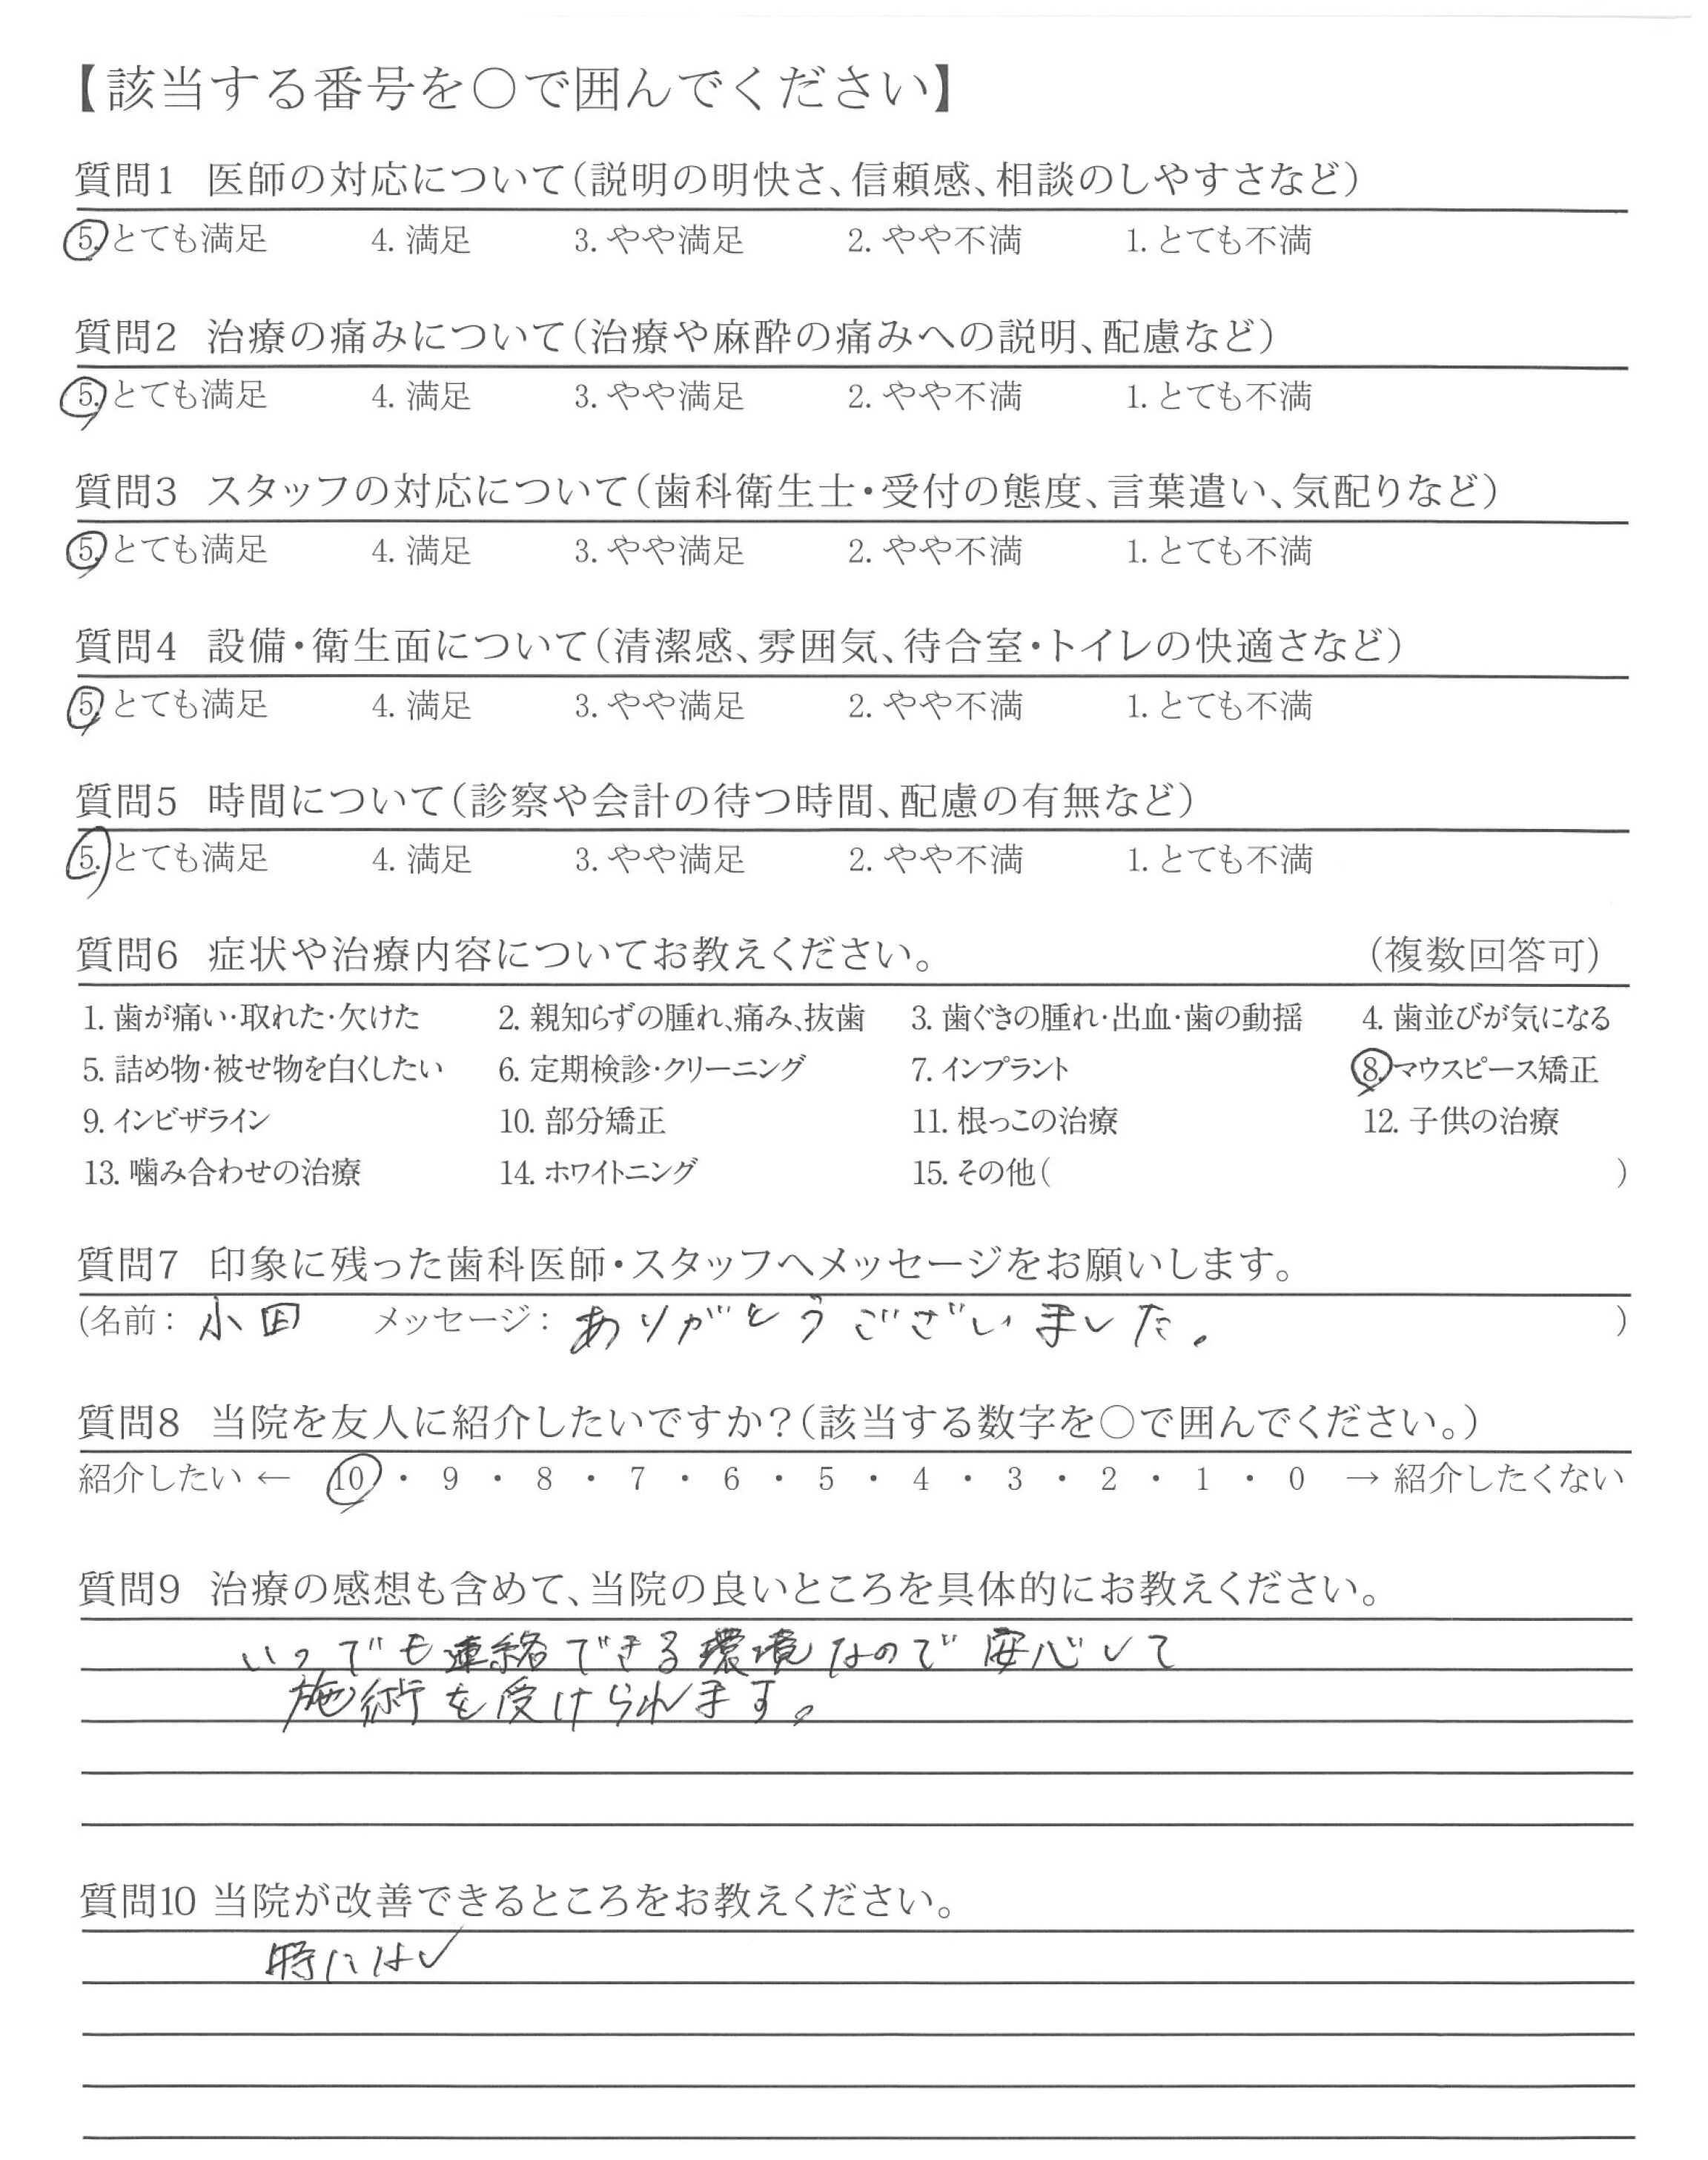 【該当する番号を○で囲んでください】
質問1 医師の対応について(説明の明快さ、信頼感、相談のしやすさなど)
5. とても満足 4. 満足 3. やや満足 2. やや不満 1. とても不満
質問2 治療の痛みについて(治療や麻酔の痛みへの説明、配慮など)
5. とても満足 4. 満足 3. やや満足 2. やや不満 1. とても不満
質問3 スタッフの対応について(歯科衛生士・受付の態度、言葉遣い、気配りなど)
5. とても満足 4. 満足 3. やや満足 2. やや不満 1. とても不満
質問4 設備・衛生面について(清潔感、雰囲気、待合室・トイレの快適さなど)
5. とても満足 4. 満足 3. やや満足 2. やや不満 1. とても不満
質問5 時間について(診察や会計の待つ時間、配慮の有無など)
5. とても満足 4. 満足 3. やや満足 2. やや不満 1. とても不満
質問6 症状や治療内容についてお教えください。 (複数回答可)
1. 歯が痛い・取れた・欠けた 2. 親知らずの腫れ、痛み、抜歯 3. 歯ぐきの腫れ・出血・歯の動揺 4. 歯並びが気になる
5. 詰め物・被せ物を白くしたい 6. 定期検診・クリーニング 7. インプラント 8. マウスピース矯正
9. インビザライン 10. 部分矯正 11. 根っこの治療 12. 子供の治療
13. 噛み合わせの治療 14. ホワイトニング 15. その他( )
質問7 印象に残った歯科医師・スタッフへメッセージをお願いします。
(名前: 小田 メッセージ: ありがとうございました。 )
質問8 当院を友人に紹介したいですか?(該当する数字を○で囲んでください。)
紹介したい ← 10 ・ 9 ・ 8 ・ 7 ・ 6 ・ 5 ・ 4 ・ 3 ・ 2 ・ 1 ・ 0 → 紹介したくない
質問9 治療の感想も含めて、当院の良いところを具体的にお教えください。
いつでも連絡できる環境なので安心して
施術を受けられます。
質問10 当院が改善できるところをお教えください。
時になし